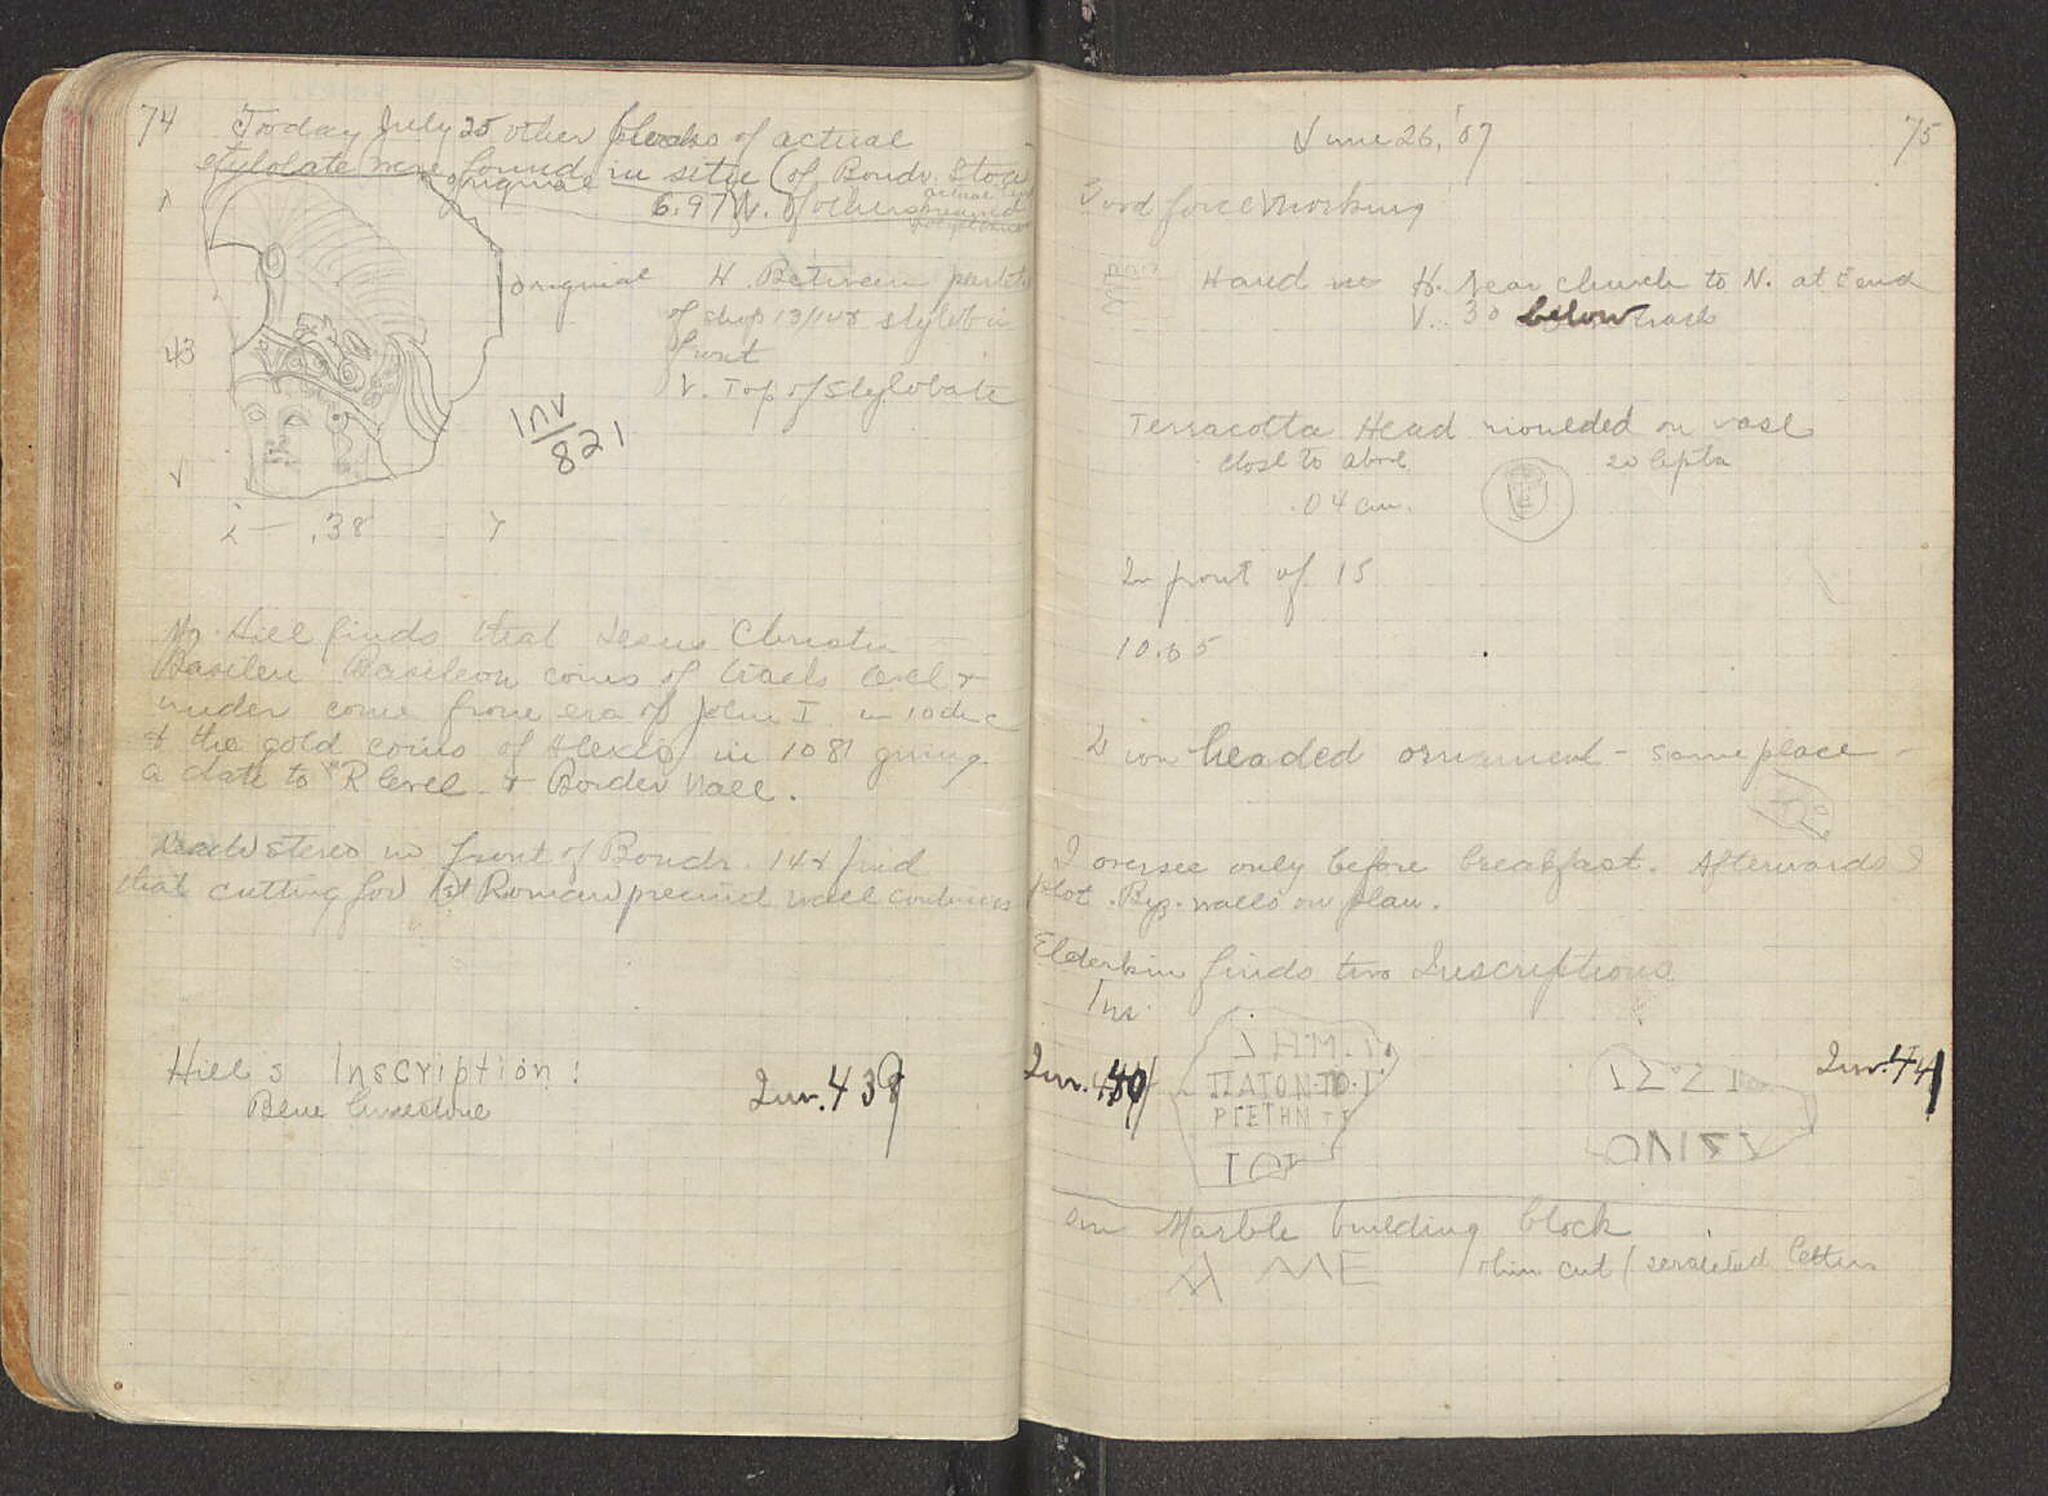 74
Today July 25 other blocks of actual
stylobate were found in situ (of Boudr. Stoa
original
6.97 W. of others
actual
original
H. Between
of shop 13/14 & stylob in
front
V. Top of Stylobate
43
Inv
821
.38
Mr. Hill finds that Jesus Christu
Basileu Basileon coins of track level &
under come from era of John I in 10th c
& the gold coins of Alexis in 1081 giving
a date to "R level & Border Wall.
stereo in front of Boudr. 14 & find
that cutting for Roman precinct wall continues
Hill's Inscription:
Blue limestone
Inv. 438
June 26, '07
75
3rd force working
Hand in H. Near church to N. at E end
V. 30 below track
Terracotta Head moulded on vase
close to above 20 lepta
.04 cm.
In front of 15
10.65
Lion headed ornament - same place -
I oversee only before breakfast. Afterwards I
plot Byz. walls on plan.
Elderkin finds two Inscriptions
Ins.
Inv. 440
ΠΑΤΟΝ·ΤΟ·Γ
ΡΓΕΤΗΝ
Inv. 441
on Marble building block
Α ΜΕ thin cut / seraded letters